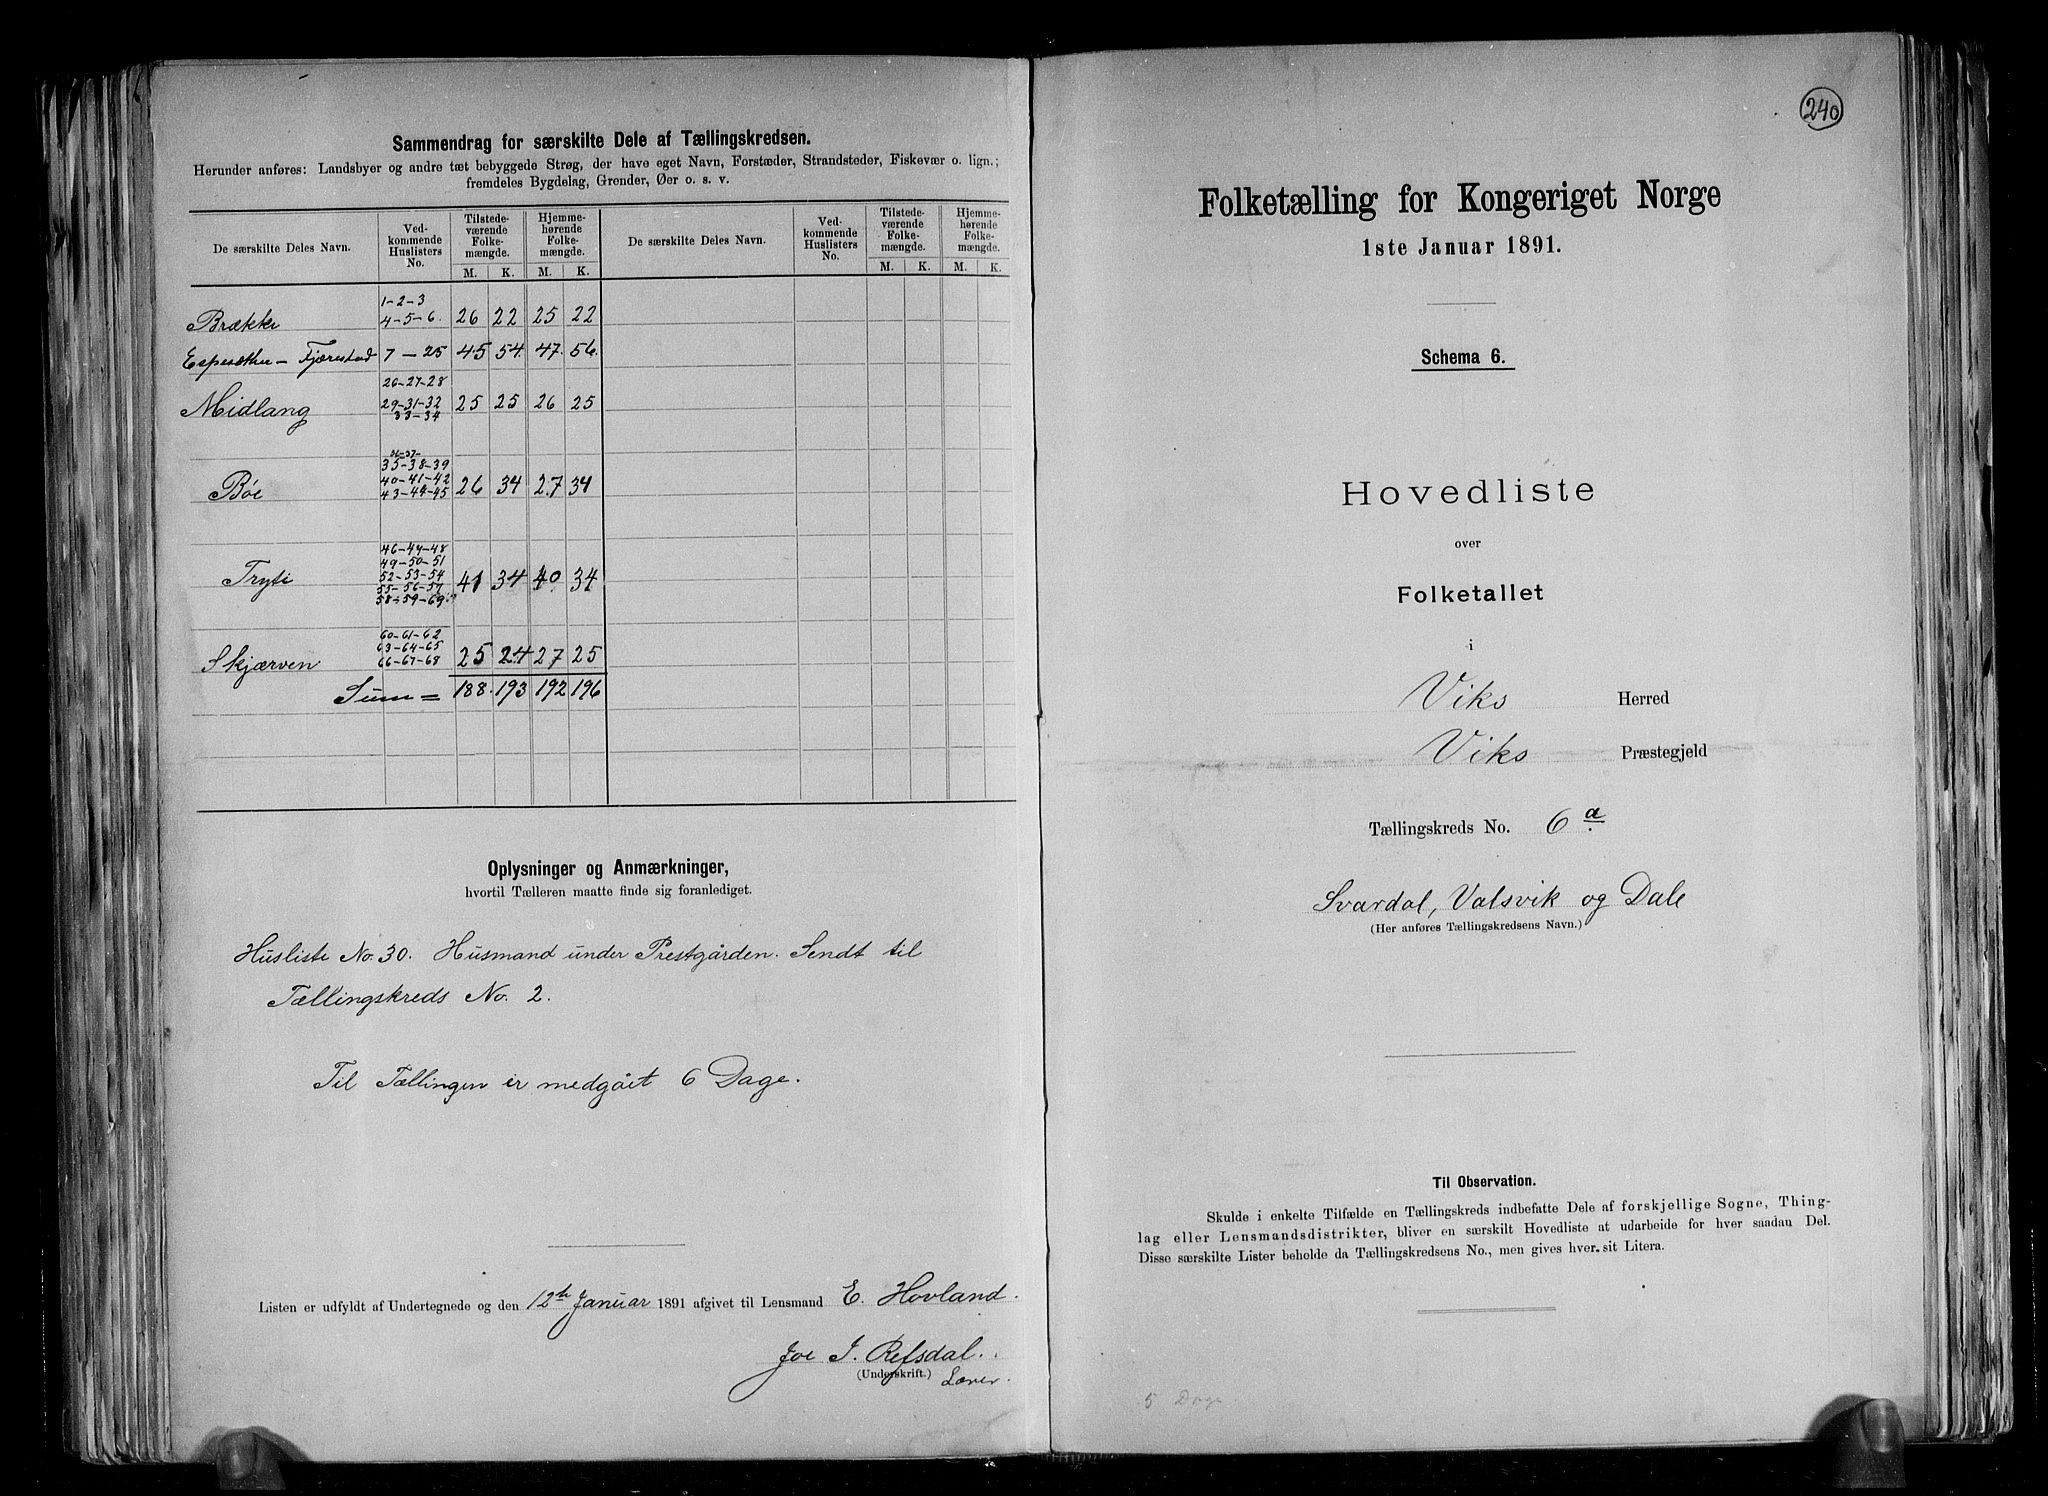 Sammendrag for særskilte Dele af Tællingskredsen.
Herunder anføres: Landsbyer og andre tæt bebyggede Strøg, der have eget Navn, Forstæder, Strandsteder, Fiskevær o. lign.;
fremdeles Bygdelag, Grender, Øer o. s. v.
De særskilte Deles Navn. Ved-kommende Huslisters No. Tilstede-værende Folke-mængde. Hjemme-hørende Folke-mængde. De særskilte Deles Navn. Ved-kommende Huslisters No. Tilstede-værende Folke-mængde. Hjemme-hørende Folke-mængde.
M. K. M. K. M. K. M. K.
1-2-3
Brække 4-5-6. 26 22 25 22
Fjærestad 7-25 45 54. 47. 56.
26-27-28
Midlang 29-31-32 25 25 26 25
33-34
36-37-
35-38-39
Bøe 40-41-42 26 34 27 34
43-44-45
46-47-48
49-50-51
Tryti 52-53-54 41 34 40. 34
55-56-57
58-59-69.
60-61-62
63-64-65
Skjærven 66-67-68 25 24 27 25
Sum = 188. 193 192 196
Oplysninger og Anmærkninger,
hvortil Tælleren maatte finde sig foranlediget.
Husliste No. 30. Husmand under Prestgården. Sendt til
Tællingskreds No. 2.
Til Tællingen er medgået 6 Dage.
Listen er udfyldt af Undertegnede og den 12te Januar 1891 afgivet til Lensmand E. Hovland.
Joe J. Refsdal.
(Underskrift.)
Lærer.
240
Folketælling for Kongeriget Norge
1ste Januar 1891.
Schema 6.
Hovedliste
over
Folketallet
i
Viks Herred
Viks Præstegjeld
Tællingskreds No. 6 a.
Svardal, Valsvik og Dale
(Her anføres Tællingskredsens Navn.)
Til Observation.
Skulde i enkelte Tilfælde en Tællingskreds indbefatte Dele af forskjellige Sogne, Thing-
lag eller Lensmandsdistrikter, bliver en særskilt Hovedliste at udarbeide for hver saadan Del.
Disse særskilte Lister beholde da Tællingskredsens No., men gives hver sit Litera.
5 Dage